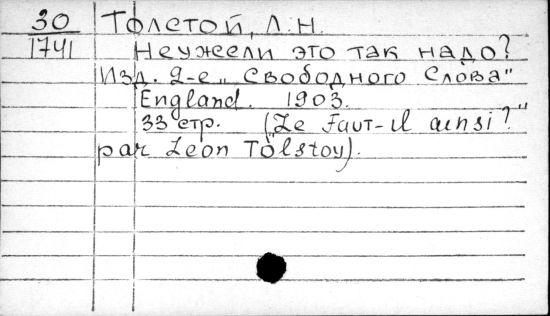 30 Толстой, Л.Н.
1741 Неужели это так надо?
Изд. 2-е „Свободного Слова"
England. 1903.
33 стр. („Le Faut-il ainsi?"
par Leon Tolstoy).